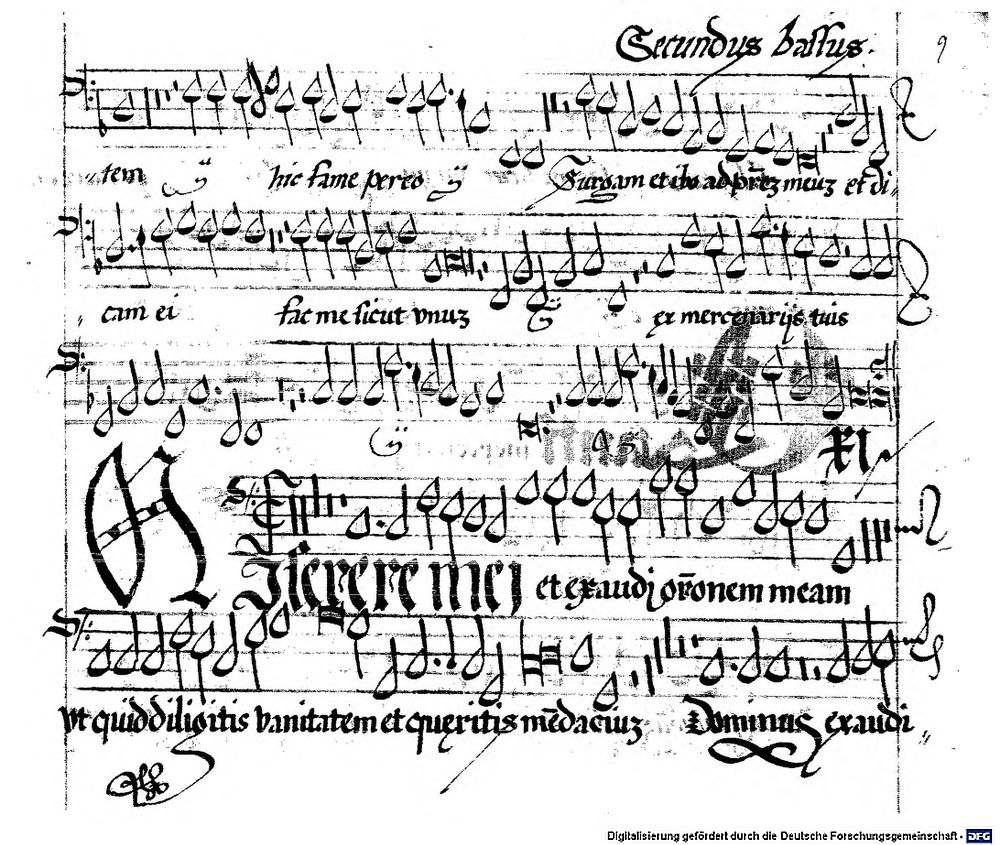 Secundus bassus. 9
tem ij hic fame pereo ij Surgam et ibo ad pr̄eʒ meuʒ et di„
cam ei fac me sicut vnuʒ ij ex mercenarijs tuis
ij ij
XI
Miserere mei et exaudi or̄onem meam
vt quid diligitis vanitatem et queritis mēdaciuʒ Dominus exaudi„
Digitalisierung gefördert durch die Deutsche Forschungsgemeinschaft - DFG